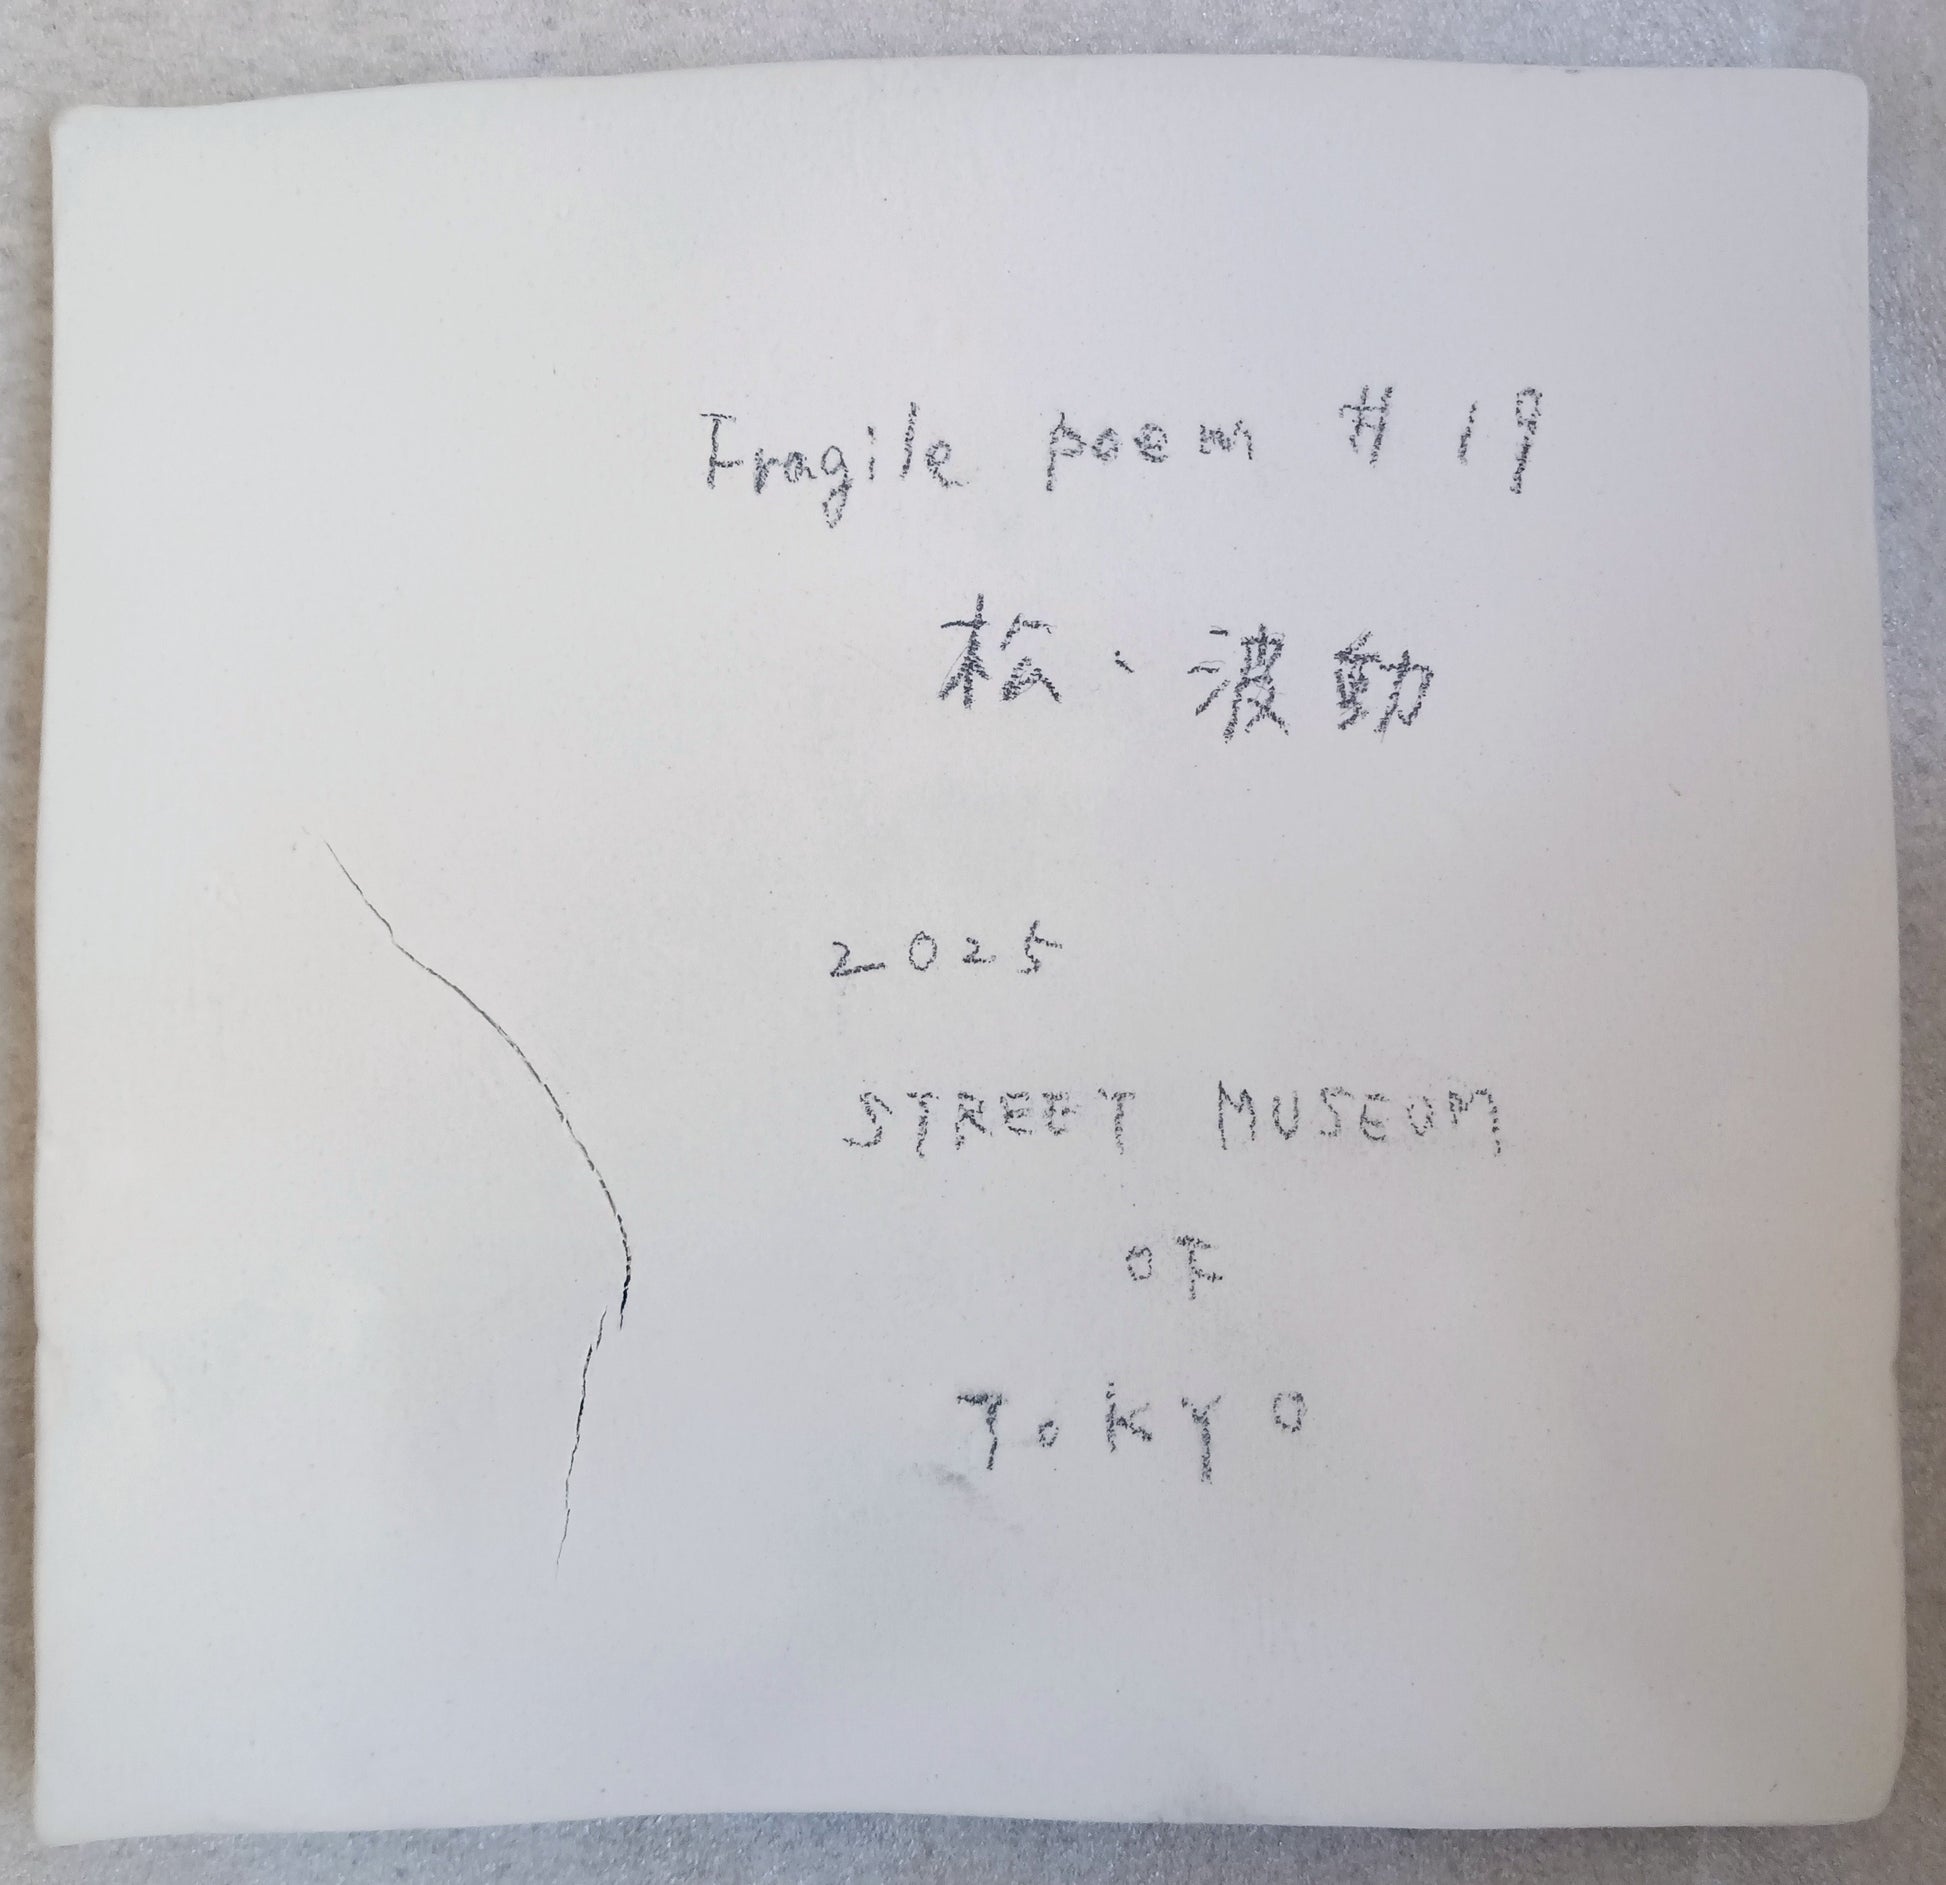 Fragile poem # 19
松、波動
2025
STREET MUSEUM
OF
TOKYO